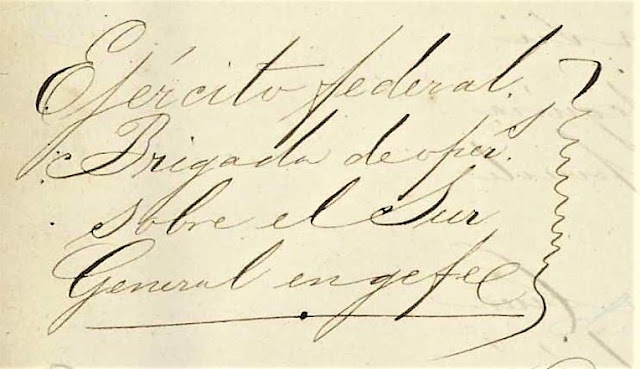 Ejército federal.
Brigada de oper.s
sobre el Sur
General en gefe